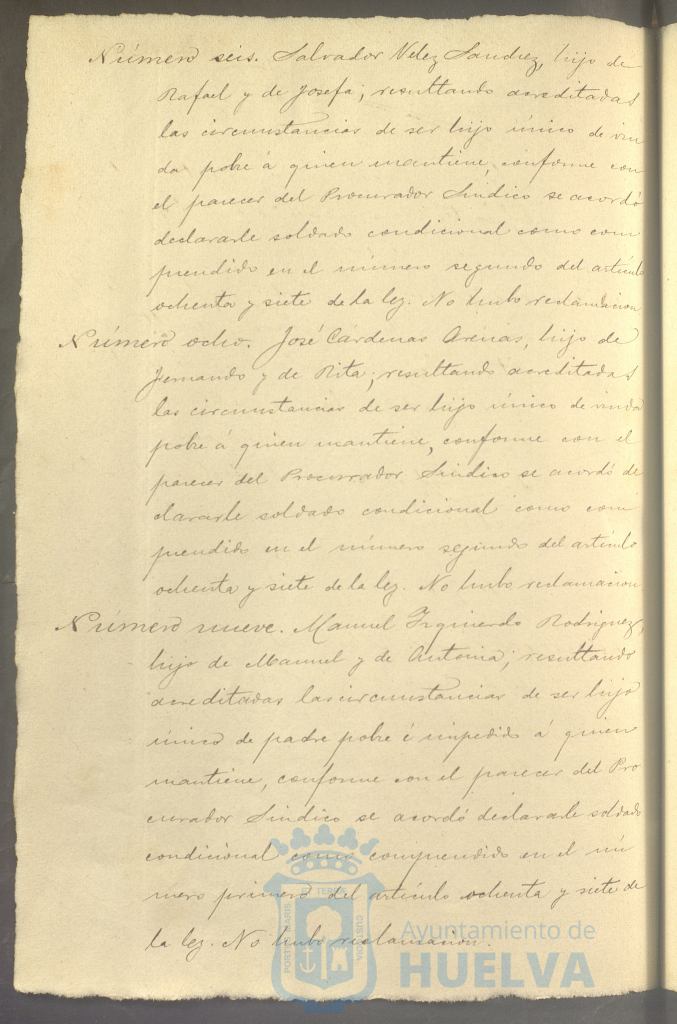 Número seis. Salvador Velez Sanchez, hijo de
Rafael y de Josefa; resultando acreditadas
las circunstancias de ser hijo único de viu
da pobre á quien mantiene, conforme con
el parecer del Procurador Síndico se acordó
declararle soldado condicional como com
prendido en el número segundo del artículo
ochenta y siete de la ley. No hubo reclamacion
Número ocho. José Cárdenas Arenas, hijo de
Fernando y de Rita; resultando acreditadas
las circunstancias de ser hijo único de viuda
pobre á quien mantiene, conforme con el
parecer del Procurador Síndico se acordó de
clararle soldado condicional como com
prendido en el número segundo del artículo
ochenta y siete de la ley. No hubo reclamacion
Número nueve. Manuel Izquierdo Rodriguez,
hijo de Manuel y de Antonia; resultando
acreditadas las circunstancias de ser hijo
único de padre pobre é impedido á quien
mantiene, conforme con el parecer del Pro
curador Síndico se acordó declararle soldado
condicional como comprendido en el nú
mero primero del artículo ochenta y siete de
la ley. No hubo reclamacion.
PORTUS MARIS ET TERRE CUSTODIA
Ayuntamiento de
HUELVA